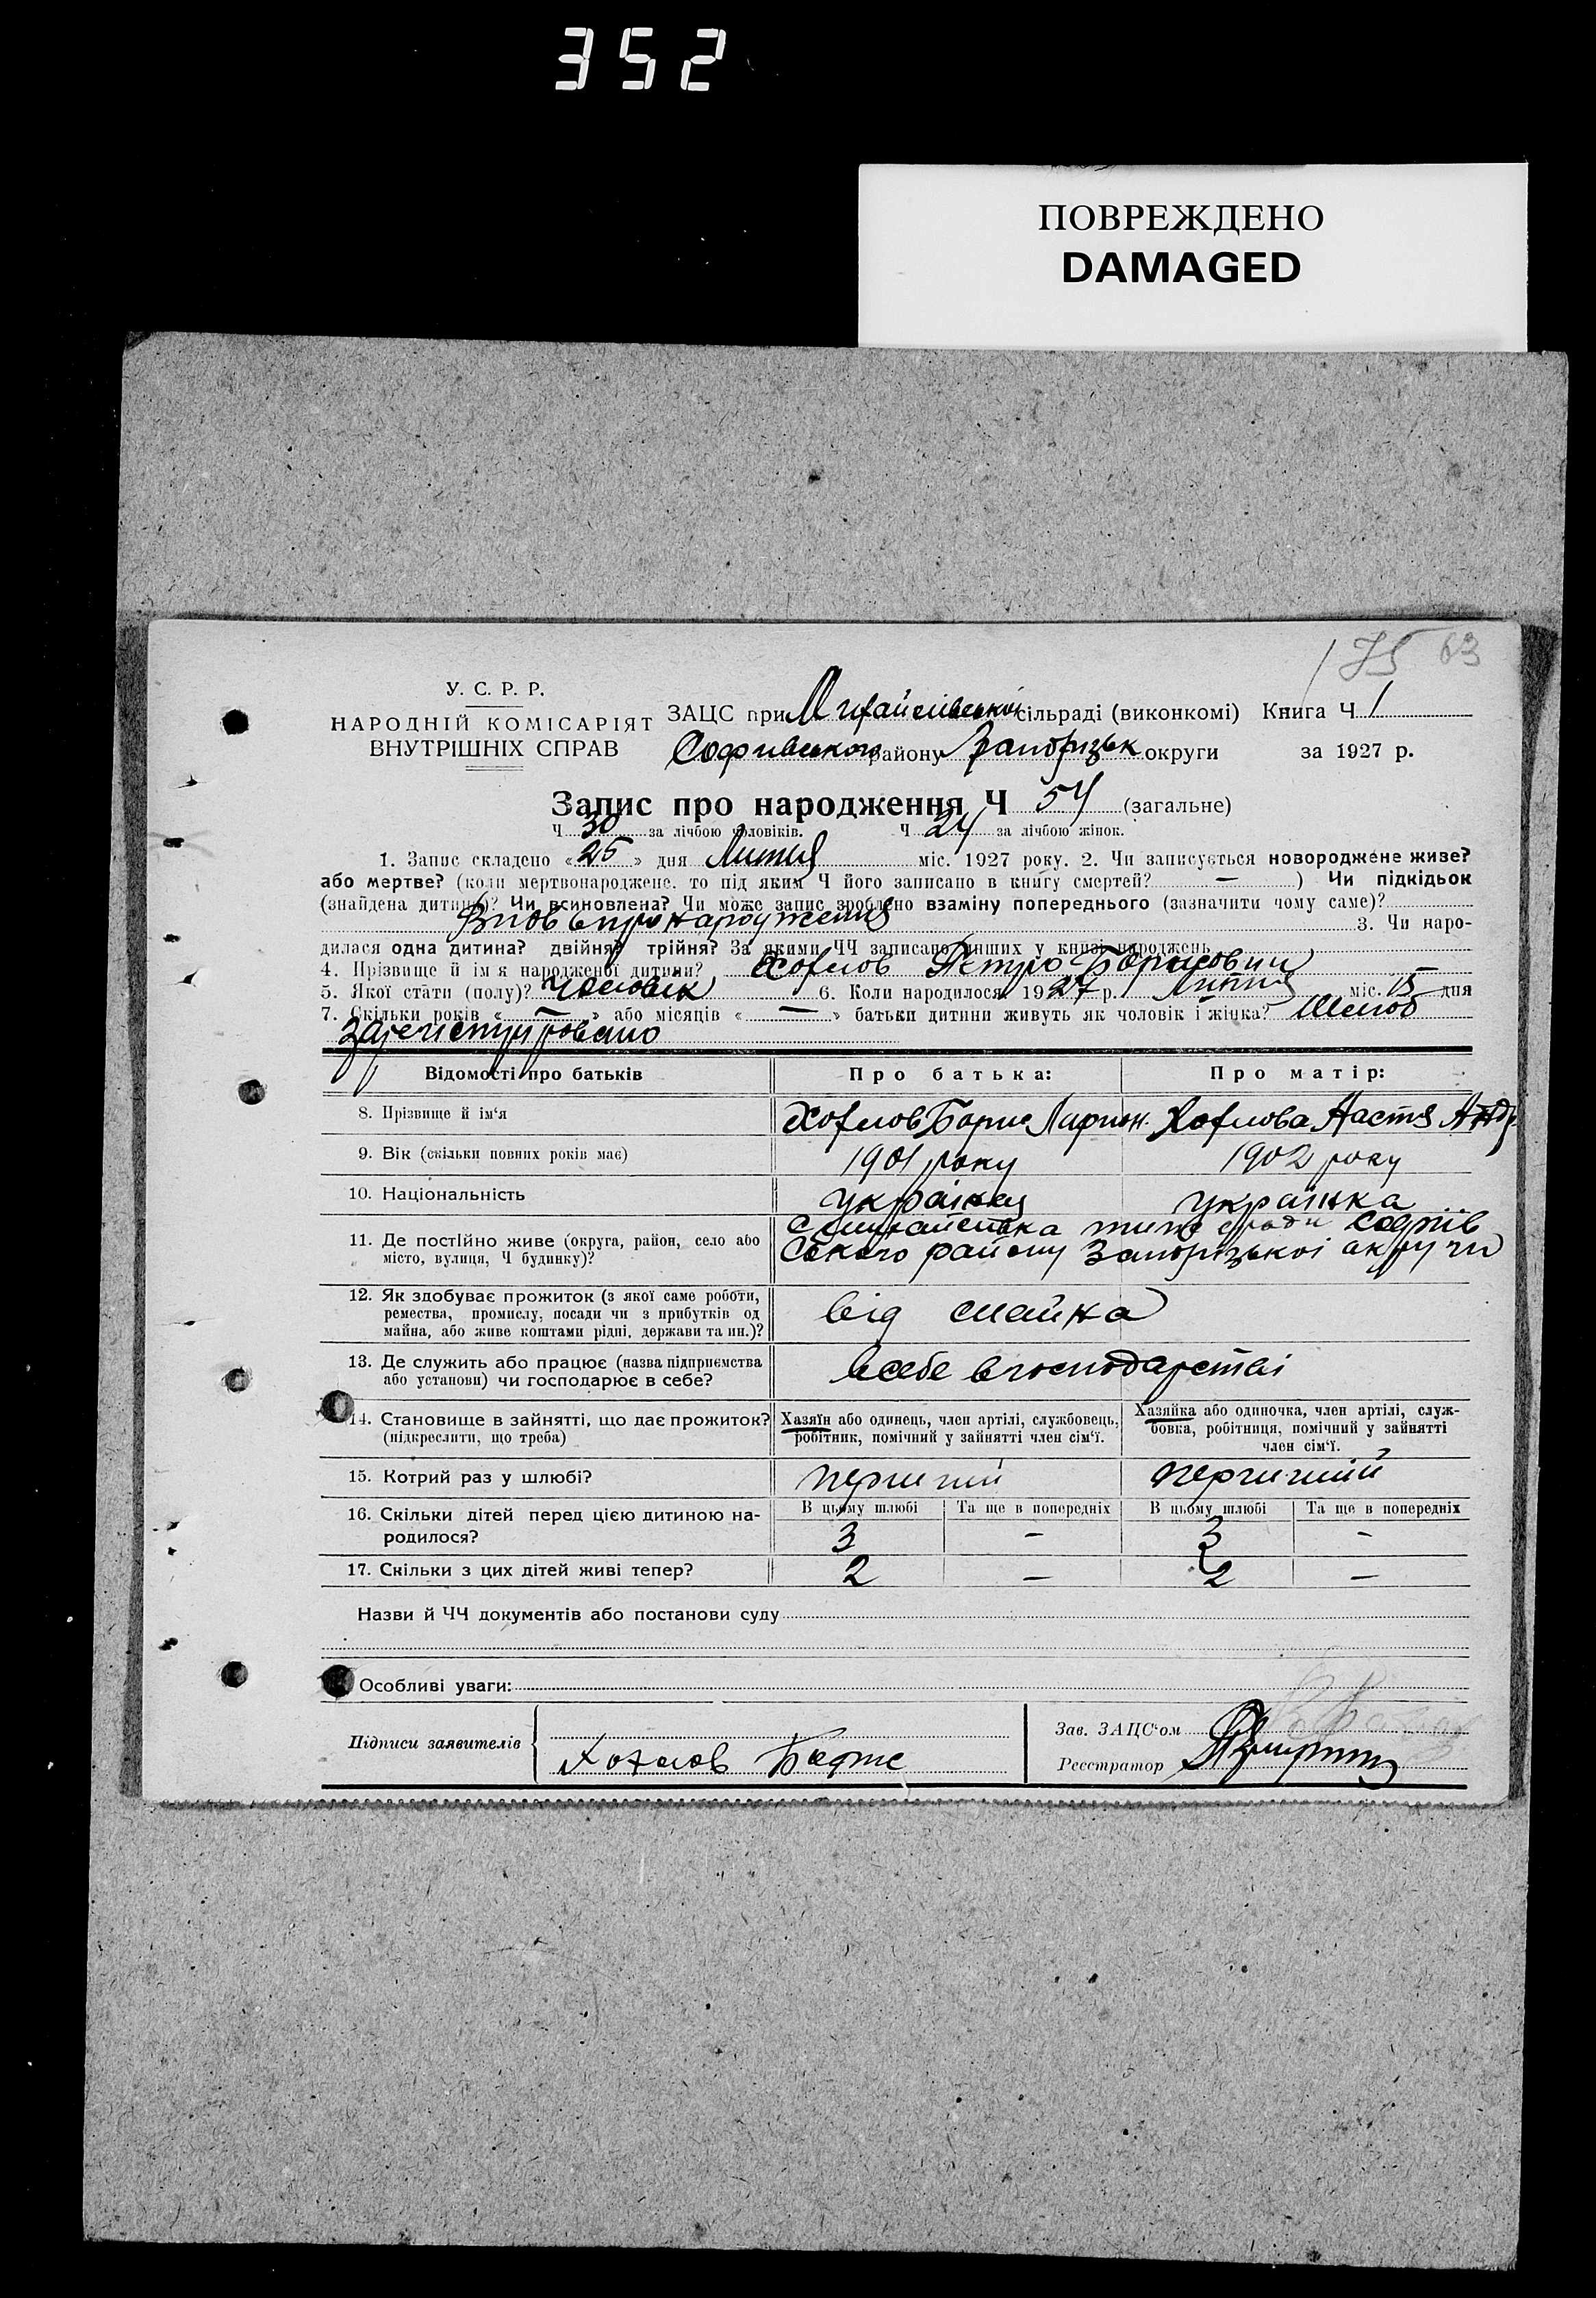 352
ПОВРЕЖДЕНО
DAMAGED
175 63
У. С. Р. Р.
НАРОДНІЙ КОМІСАРІЯТ
ВНУТРІШНІХ СПРАВ
ЗАЦС при Михайлівської сільраді (виконкомі) Книга Ч 1
Софиевского району Запорізьк округи за 1927 р.
Запис про народження Ч 54 (загальне)
Ч 30 за лічбою чоловіків. Ч 24 за лічбою жінок.
1. Запис складено «25» дня Липня міс. 1927 року. 2. Чи записується новороджене живе?
або мертве? (коли мертвонароджене, то під яким Ч його записано в книгу смертей? — ) Чи підкідьок
(знайдена дитина)? Чи всиновлена? Чи може запис зроблено взаміну попереднього (зазначити чому саме)?
Вновь про народження 3. Чи наро-
дилася одна дитина? двійня? трійня? За якими ЧЧ записано инших у книзі народжень
4. Прізвище й ім'я народженої дитини? Хохлов Петро Борисович
5. Якої стати (полу)? Чоловік 6. Коли народилося 1927 р. Липня міс. 15 дня
7. Скільки років « — » або місяців « — » батьки дитини живуть як чоловік і жінка? Шлюб
зарегистрировано
Відомості про батьків Про батька: Про матір:
8. Прізвище й ім'я Хохлов Борис Ларион. Хохлова Настя Андр.
9. Вік (скільки повних років має) 1901 року 1902 року
10. Національність українец українка
11. Де постійно живе (округа, район, село або
місто, вулиця, Ч будинку)?
с Михайлівка Софіїв
ського району Запорізької округи
12. Як здобуває прожиток (з якої саме роботи,
ремества, промислу, посади чи з прибутків од
майна, або живе коштами рідні, держави та ин.)?
від майна
13. Де служить або працює (назва підприємства
або установи) чи господарює в себе?
всебе вгосподарстві
14. Становище в зайнятті, що дає прожиток?
(підкреслити, що треба)
Хазяїн або одинець, член артілі, службовець,
робітник, помічний у зайнятті член сім'ї.
Хазяйка або одиночка, член артілі, служ-
бовка, робітниця, помічний у зайнятті
член сім'ї.
15. Котрий раз у шлюбі? перший перший
16. Скільки дітей перед цією дитиною на-
родилося?
В цьому шлюбі Та ще в попередніх В цьому шлюбі Та ще в попередніх
3 — 3 —
17. Скільки з цих дітей живі тепер? 2 — 2 —
Назви й ЧЧ документів або постанови суду
Особливі уваги:
Підписи заявителів
Хохлов Борис
Зав. ЗАЦС'ом
Реєстратор